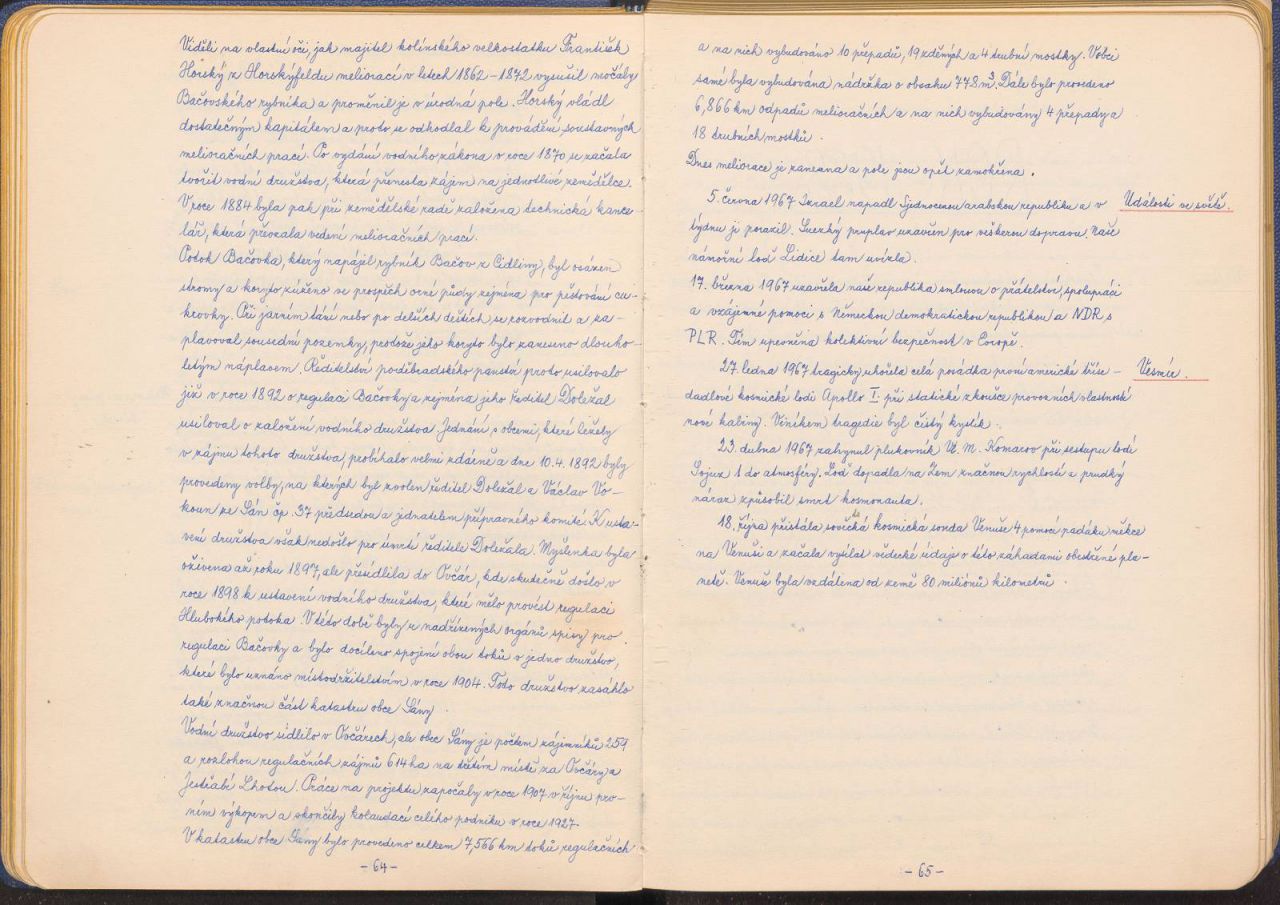 Viděli na vlastní oči, jak majitel kolínského velkostatku František
Horský z Horskýfeldu meliorací v letech 1862 – 1872 vysušil močály
Bačovského rybníka a proměnil je v úrodná pole. Horský vládl
dostatečným kapitálem a proto se odhodlal k provádění soustavných
melioračních prací. Po vydání vodního zákona v roce 1870 se začala
tvořit vodní družstva, která přenesla zájem na jednotlivé zemědělce.
V roce 1884 byla pak při zemědělské radě založena technická kance-
lář, která převzala vedení melioračních prací.
Potok Bačovka, který napájil rybník Bačov z Cidliny, byl osázen
stromy a koryto zúženo ve prospěch orné půdy zejména pro pěstování cu-
krovky. Při jarním tání nebo po delších deštích se rozvodnil a za-
plavoval sousední pozemky, protože jeho koryto bylo zaneseno dlouho-
letým náplavem. Ředitelství poděbradského panství proto usilovalo
již v roce 1892 o regulaci Bačovky a zejména jeho ředitel Doležal
usiloval o založení vodního družstva. Jednání s obcemi, které ležely
v zájmu tohoto družstva, probíhalo velmi zdárně a dne 10.4. 1892 byly
provedeny volby, na kterých byl zvolen ředitel Doležal a Václav Vo-
koun ze Sán čp. 37 předsedou a jednatelem přípravného komité. K usta-
vení družstva však nedošlo pro úmrtí ředitele Doležala. Myšlenka byla
oživena až roku 1897, ale přesídlila do Ovčár, kde skutečně došlo v
roce 1898 k ustavení vodního družstva, které mělo provést regulaci
Hlubokého potoka. V této době byly u nadřízených orgánů spisy pro
regulaci Bačovky a bylo docíleno spojení obou toků v jedno družstvo,
které bylo uznáno místodržitelstvím v roce 1904. Toto družstvo zasáhlo
také značnou část katastru obce Sány.
Vodní družstvo sídlilo v Ovčárech, ale obec Sány je počtem zájemníků 259
a rozlohou regulačních zájmů 614 ha na třetím místě za Ovčáry a
Jestřabí Lhotou. Práce na projektu započaly v roce 1907 v říjnu prv-
ním výkopem a skončily kolaudací celého podniku v roce 1927.
V katastru obce Sány bylo provedeno celkem 7,566 km toků regulačních
– 64 –
a na nich vybudováno 10 přepadů, 19 zděných a 4 trubní mostky. V obci
samé byla vybudována nádržka o obsahu 778 m³. Dále bylo provedeno
6,866 km odpadů melioračních a na nich vybudovány 4 přepady a
18 trubních mostků.
Dnes meliorace je zanesena a pole jsou opět zamokřena.
5. června 1967 Izrael napadl Sjednocenou arabskou republiku a v
Události ve světě.
týdnu je porazil. Suezký průplav uzavřen pro veškerou dopravu. Naše
námořní loď Lidice tam uvízla.
17. března 1967 uzavřela naše republika smlouvu o přátelství, spolupráci
a vzájemné pomoci s Německou demokratickou republikou a NDR s
PLR. Tím upevněna kolektivní bezpečnost v Evropě.
27. ledna 1967 tragicky uhořela celá posádka první americké tříse-
Vesmír.
dadlové kosmické lodi Apollo I. při statické zkoušce provozních vlastností
nové kabiny. Viníkem tragedie byl čistý kyslík.
23. dubna 1967 zahynul plukovník V. M. Komarov při sestupu lodi
Sojuz 1 do atmosféry. Loď dopadla na Zem značnou rychlostí a prudký
náraz způsobil smrt kosmonauta.
18. října přistála sovětská kosmická sonda Venuše 4 pomocí padáku měkce
na Venuši a začala vysílat vědecké údaje o této záhadami obestřené pla-
netě. Venuše byla vzdálena od země 80 miliónů kilometrů.
– 65 –